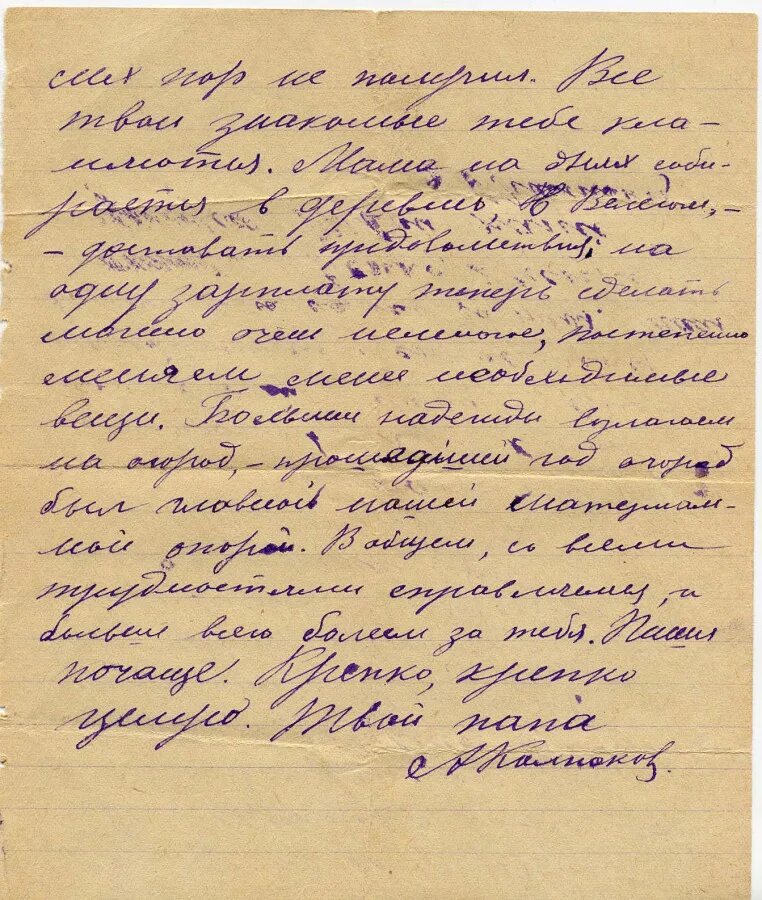 сих пор не получил. Все
твои знакомые тебе кла-
няются. Мама на днях соби-
рается в деревню к
- доставать продовольствия, на
одну зарплату теперь сделать
можно очен немногое, постепенно
меняем мене необходимые
вещи. Большие надежды возлагаем
на огород, - прошедший год огород
был главной нашей материаль-
ной опорой. В общем, со всеми
трудностями справляемся, и
больше всего болеем за тебя. Пиши
почаще. Крепко, крепко
целую. Твой папа